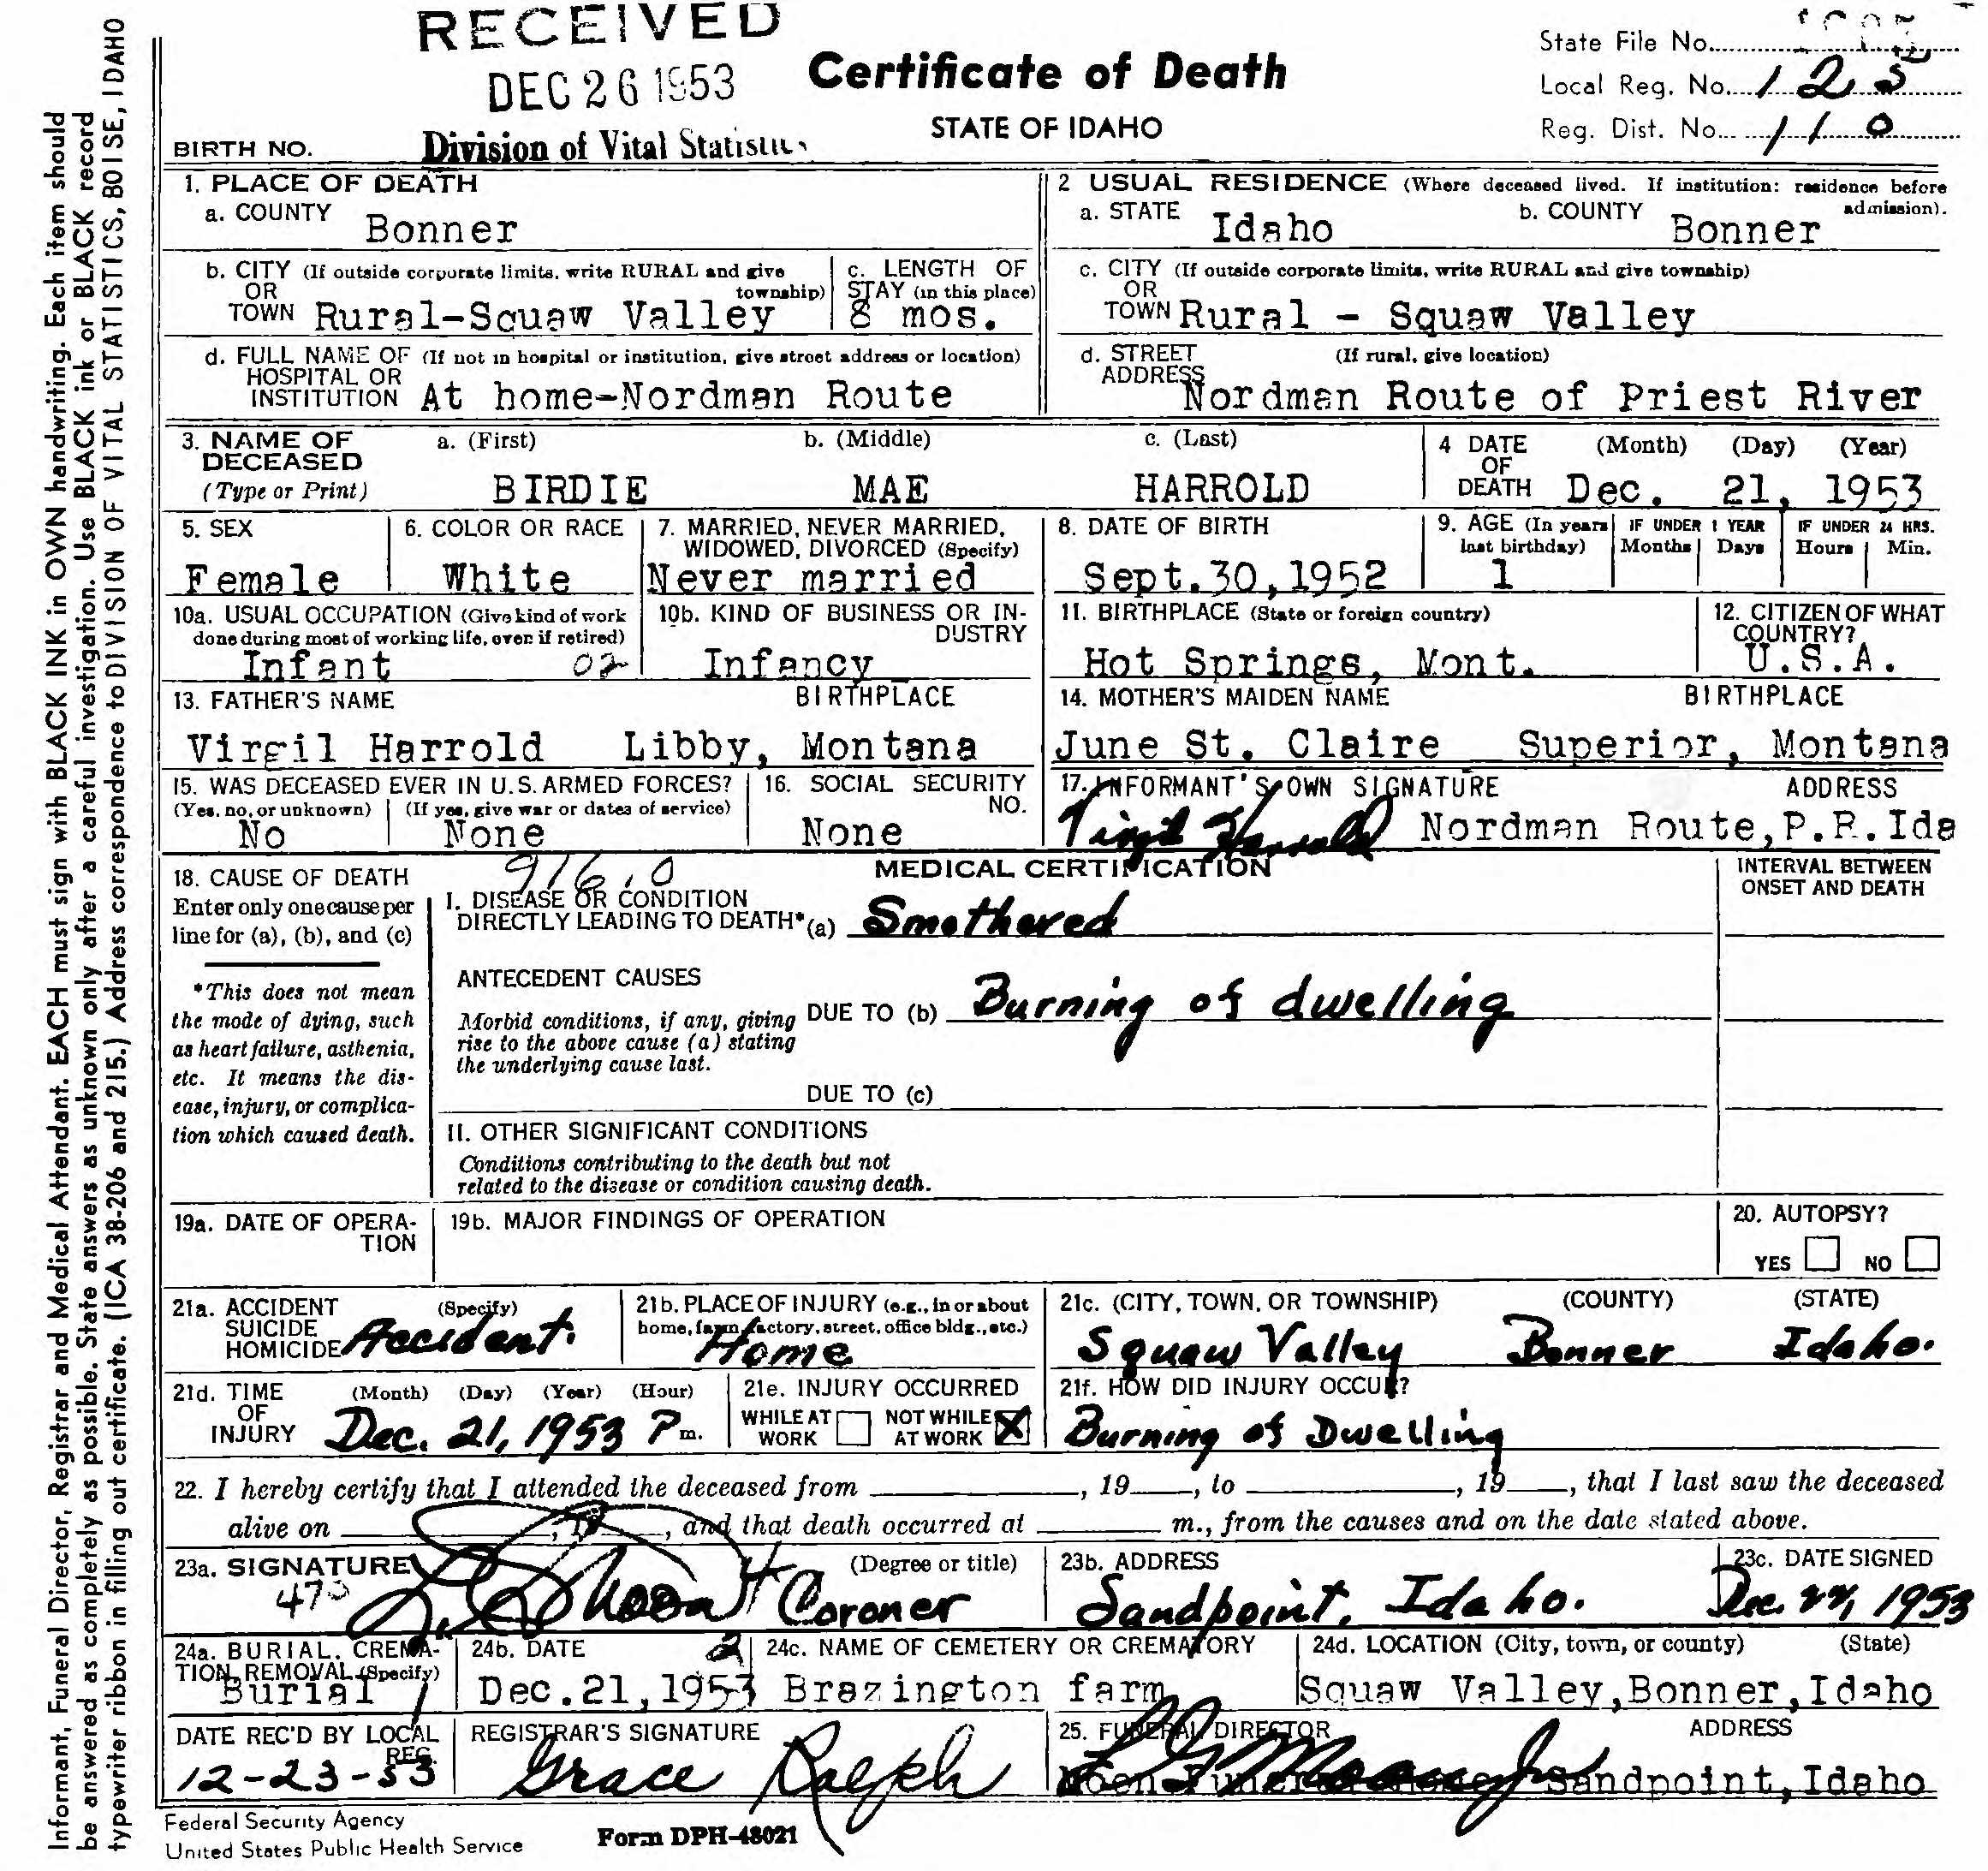 RECEIVED
DEC 26 1953
Division of Vital Statistics
Certificate of Death
STATE OF IDAHO
State File No.
Local Reg. No. 125
Reg. Dist. No. 110
BIRTH NO.
1. PLACE OF DEATH
a. COUNTY Bonner
b. CITY (If outside corporate limits, write RURAL and give township) OR TOWN Rural-Squaw Valley
c. LENGTH OF STAY (in this place) 8 mos.
d. FULL NAME OF (If not in hospital or institution, give street address or location) HOSPITAL OR INSTITUTION At home-Nordman Route
2 USUAL RESIDENCE (Where deceased lived. If institution: residence before admission).
a. STATE Idaho b. COUNTY Bonner
c. CITY (If outside corporate limits, write RURAL and give township) OR TOWN Rural - Squaw Valley
d. STREET ADDRESS (If rural, give location) Nordman Route of Priest River
3. NAME OF DECEASED (Type or Print) a. (First) BIRDIE b. (Middle) MAE c. (Last) HARROLD
4 DATE OF DEATH (Month) (Day) (Year) Dec. 21, 1953
5. SEX Female
6. COLOR OR RACE White
7. MARRIED, NEVER MARRIED, WIDOWED, DIVORCED (Specify) Never married
8. DATE OF BIRTH Sept.30,1952
9. AGE (In years last birthday) 1 IF UNDER 1 YEAR Months Days IF UNDER 24 HRS. Hours Min.
10a. USUAL OCCUPATION (Give kind of work done during most of working life, even if retired) Infant 02
10b. KIND OF BUSINESS OR INDUSTRY Infancy
11. BIRTHPLACE (State or foreign country) Hot Springs, Mont.
12. CITIZEN OF WHAT COUNTRY? U.S.A.
13. FATHER'S NAME BIRTHPLACE
Virgil Harrold Libby, Montana
14. MOTHER'S MAIDEN NAME BIRTHPLACE
June St. Claire Superior, Montana
15. WAS DECEASED EVER IN U.S. ARMED FORCES?
(Yes, no, or unknown) No (If yes, give war or dates of service) None
16. SOCIAL SECURITY NO. None
17. INFORMANT'S OWN SIGNATURE ADDRESS
Virgil Harrold Nordman Route,P.R.Ida
18. CAUSE OF DEATH
Enter only one cause per line for (a), (b), and (c)
*This does not mean the mode of dying, such as heart failure, asthenia, etc. It means the disease, injury, or complication which caused death.
916.0
MEDICAL CERTIFICATION
INTERVAL BETWEEN ONSET AND DEATH
I. DISEASE OR CONDITION DIRECTLY LEADING TO DEATH* (a) Smothered
ANTECEDENT CAUSES
Morbid conditions, if any, giving rise to the above cause (a) stating the underlying cause last.
DUE TO (b) Burning of dwelling
DUE TO (c)
II. OTHER SIGNIFICANT CONDITIONS
Conditions contributing to the death but not related to the disease or condition causing death.
19a. DATE OF OPERATION
19b. MAJOR FINDINGS OF OPERATION
20. AUTOPSY?
YES NO
21a. ACCIDENT SUICIDE HOMICIDE (Specify) Accident.
21b. PLACE OF INJURY (e.g., in or about home, farm, factory, street, office bldg., etc.) Home
21c. (CITY, TOWN, OR TOWNSHIP) (COUNTY) (STATE)
Squaw Valley Bonner Idaho.
21d. TIME OF INJURY (Month) (Day) (Year) (Hour) Dec. 21, 1953 P m.
21e. INJURY OCCURRED WHILE AT WORK NOT WHILE AT WORK X
21f. HOW DID INJURY OCCUR?
Burning of Dwelling
22. I hereby certify that I attended the deceased from , 19 , to , 19 , that I last saw the deceased
alive on , 19 , and that death occurred at m., from the causes and on the date stated above.
23a. SIGNATURE (Degree or title) Coroner
23b. ADDRESS Sandpoint, Idaho.
23c. DATE SIGNED Dec. 22, 1953
24a. BURIAL, CREMATION, REMOVAL (Specify) Burial
24b. DATE Dec.21,1953
2
24c. NAME OF CEMETERY OR CREMATORY Brazington farm
24d. LOCATION (City, town, or county) (State) Squaw Valley,Bonner,Idaho
DATE REC'D BY LOCAL REG. 12-23-53
REGISTRAR'S SIGNATURE Grace Ralph
25. FUNERAL DIRECTOR ADDRESS
Sandpoint,Idaho
Federal Security Agency
United States Public Health Service
Form DPH-48021
Informant, Funeral Director, Registrar and Medical Attendant. EACH must sign with BLACK INK in OWN handwriting. Each item should
be answered as completely as possible. State answers as unknown only after a careful investigation. Use BLACK ink or BLACK record
typewriter ribbon in filling out certificate. (ICA 38-206 and 215.) Address correspondence to DIVISION OF VITAL STATISTICS, BOISE, IDAHO